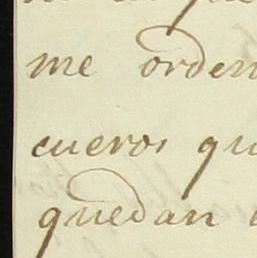 me orden
cueros qu
quedan